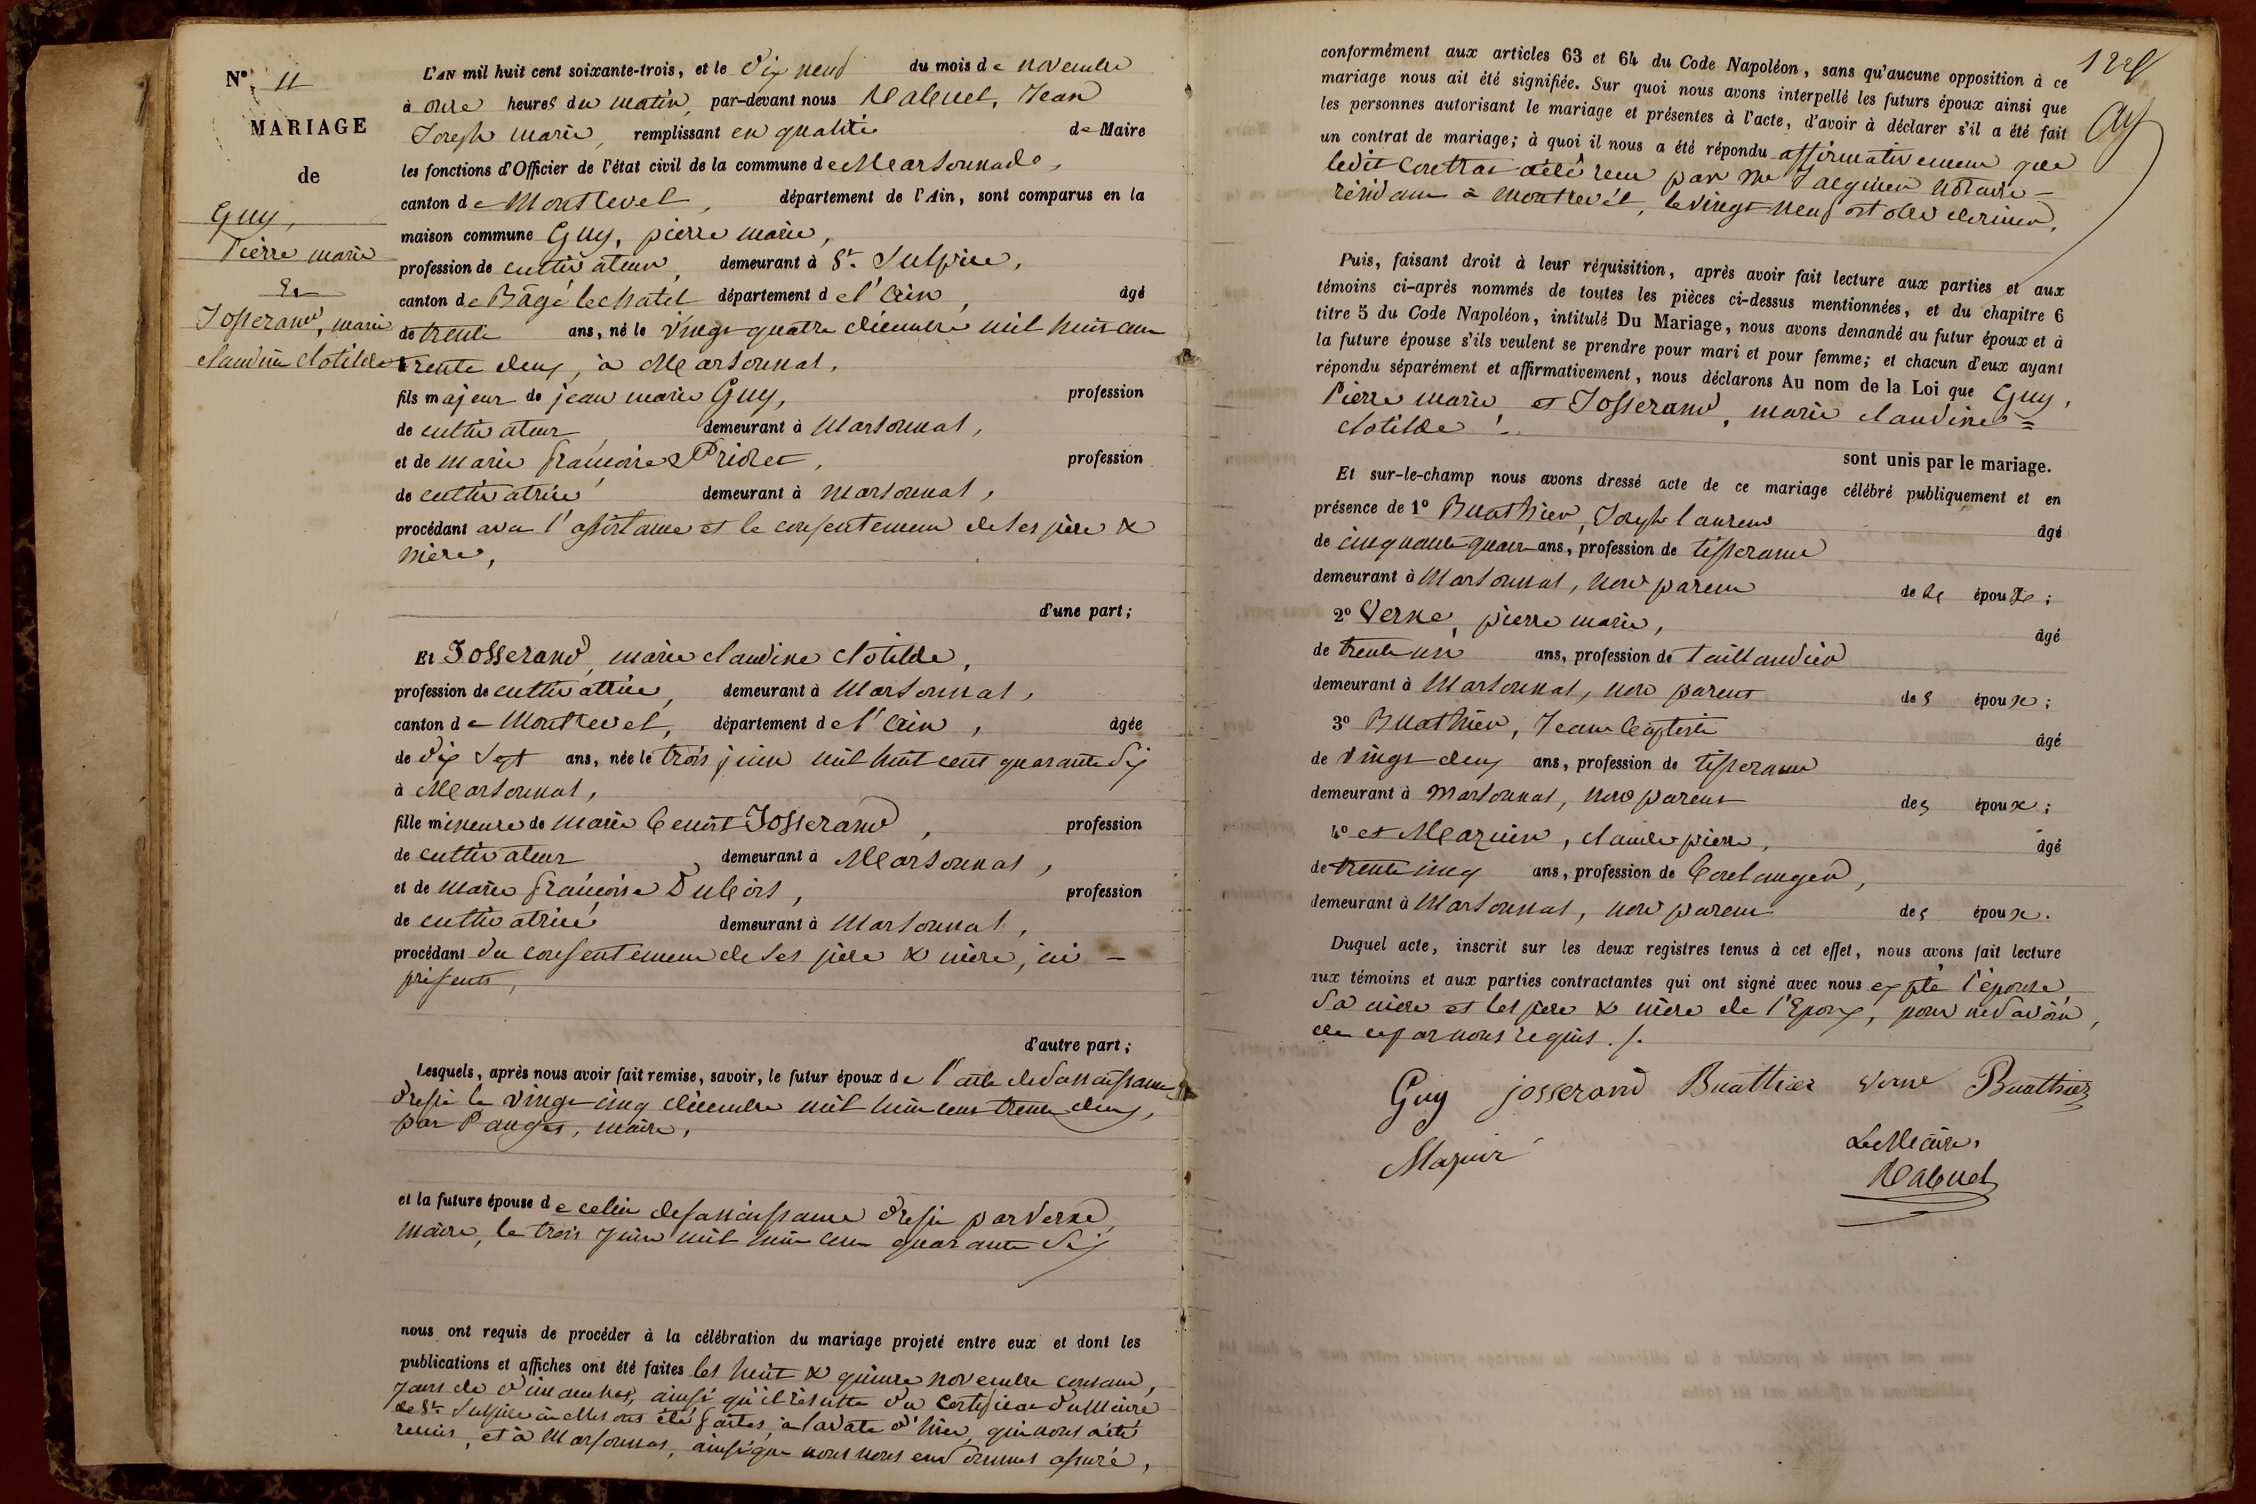 N° 11
MARIAGE
de
Guy,
Pierre marie
Et
Josserand, marie
claudine Clotilde
L'AN mil huit cent soixante-trois, et le dix neuf du mois de novembre
à onze heures du matin, par-devant nous Rabuel, Jean
Joseph marie, remplissant en qualité de Maire
les fonctions d'Officier de l'état civil de la commune de Marsonnas,
canton de Montrevel, département de l'Ain, sont comparus en la
maison commune Guy, pierre marie,
profession de cultivateur, demeurant à St. Sulpice,
canton de Bâgé le chatel département de l'ain, âgé
de trente ans, né le vingt quatre décembre mil huit cent
trente deux, à Marsonnas,
fils majeur de jean marie Guy, profession
de cultivateur demeurant à Marsonnas,
et de marie françoise Prioret, profession
de cultivatrice demeurant à marsonnas,
procédant avec l'assistance et le consentement de ses père &
mère,
d'une part;
Et Josserand, marie claudine Clotilde,
profession de cultivatrice, demeurant à Marsonnas,
canton de Montrevel, département de l'ain, âgée
de dix sept ans, née le trois juin mil huit cent quarante six
à Marsonnas,
fille mineure de marie benoit Josserand, profession
de cultivateur, demeurant à Marsonnas,
et de marie françoise Dubois, profession
de cultivatrice demeurant à Marsonnas,
procédant du consentement de ses père & mère, ici –
présents,
d'autre part;
Lesquels, après nous avoir fait remise, savoir, le futur époux de l'acte de sa naissance
dressé le vingt cinq décembre mil huit cent trente deux,
par Pauget, maire,
et la future épouse de celui de sa naissance dressé par Verne,
maire, le trois Juin mil huit cent quarante six
nous ont requis de procéder à la célébration du mariage projeté entre eux et dont les
publications et affiches ont été faites les huit & quinze novembre courant,
jours de dimanches, ainsi qu'il résulte du certificat du Maire
de St. Sulpice où elles ont été faites, à la date d'hier, qui nous a été
remis, et à Marsonnas, ainsi que nous nous en sommes assuré,
129
conformément aux articles 63 et 64 du Code Napoléon, sans qu'aucune opposition à ce
mariage nous ait été signifiée. Sur quoi nous avons interpellé les futurs époux ainsi que
les personnes autorisant le mariage et présentes à l'acte, d'avoir à déclarer s'il a été fait
un contrat de mariage; à quoi il nous a été répondu affirmativement que
ledit contrat a été reçu par Me Jacquier Notaire –
résidant à Montrevel, le vingt neuf octobre dernier.
Puis, faisant droit à leur réquisition, après avoir fait lecture aux parties et aux
témoins ci-après nommés de toutes les pièces ci-dessus mentionnées, et du chapitre 6
titre 5 du Code Napoléon, intitulé Du Mariage, nous avons demandé au futur époux et à
la future épouse s'ils veulent se prendre pour mari et pour femme; et chacun d'eux ayant
répondu séparément et affirmativement, nous déclarons Au nom de la Loi que Guy,
Pierre marie, et Josserand, marie claudine =
Clotilde
sont unis par le mariage.
Et sur-le-champ nous avons dressé acte de ce mariage célébré publiquement et en
présence de 1° Buathier, Joseph laurent âgé
de cinquante quatre ans, profession de tisserand
demeurant à Marsonnas, non parent des époux;
2° Verne, pierre marie, âgé
de trente un ans, profession de taillandier
demeurant à Marsonnas, non parent des époux;
3° Buathier, Jean baptiste âgé
de vingt deux ans, profession de tisserand
demeurant à Marsonnas, non parent des époux;
4° et Mazuir, claude pierre, âgé
de trente cinq ans, profession de boulanger,
demeurant à Marsonnas, non parent des époux.
Duquel acte, inscrit sur les deux registres tenus à cet effet, nous avons fait lecture
aux témoins et aux parties contractantes qui ont signé avec nous excepté l'épouse
sa mère et les père & mère de l'Epoux, pour ne savoir,
de ce par nous requis ./.
Guy josserand Buathier Verne Buathier
Mazuir
Le Maire,
Rabuel